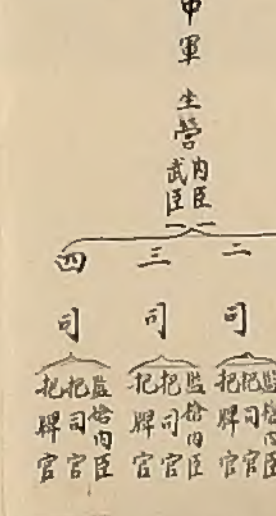 中軍 坐營
内臣一
武臣一
二司
監槍内臣
把司官
把牌官
三司
監槍内臣
把司官
把牌官
四司
監槍内臣
把司官
把牌官